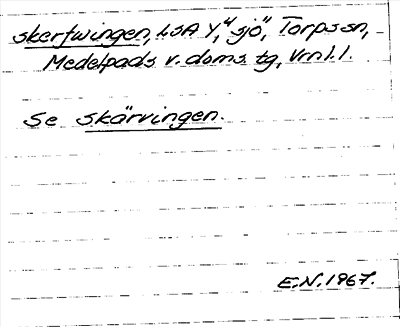 skerfwingen, LSA Y, "sjö", Torps sn,
Medelpads v. doms. tg, Vrnl. l.
Se skärvingen.
E.N. 1967.